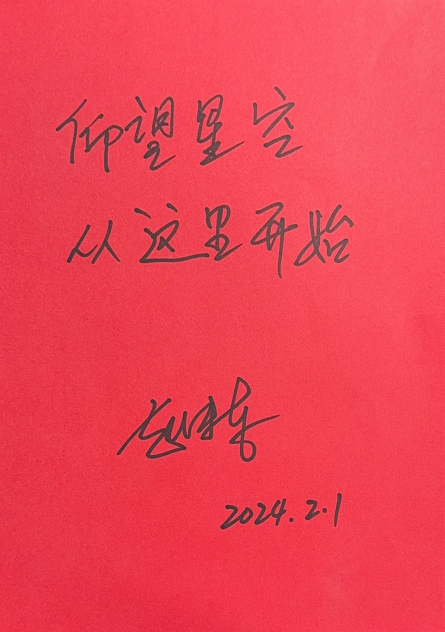 仰望星空
从这里开始
2024.2.1